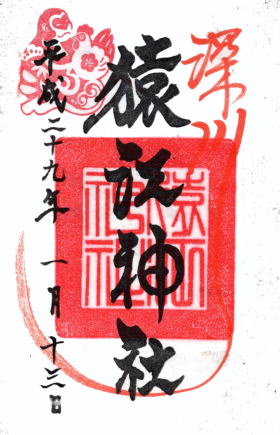 深川
猿江神社
平成二十九年 一月十三日